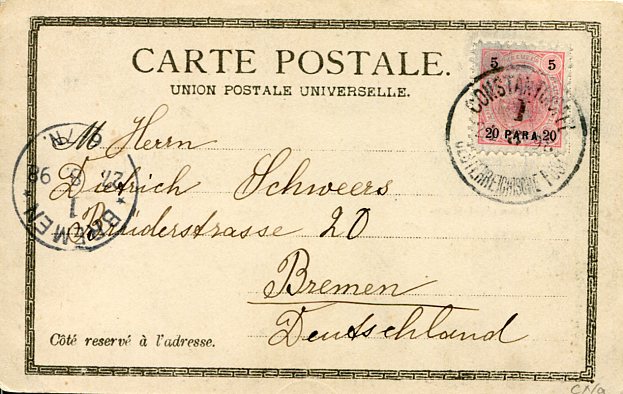 CARTE POSTALE.
UNION POSTALE UNIVERSELLE.
5 5
20 PARA 20
CONSTANTINOPEL
I
OESTERREICHISCHE POST
M Herrn
Dietrich Schweers
Brüderstrasse 20
Bremen
Deutschland
BREMEN
1
98
Côté reservé à l'adresse.